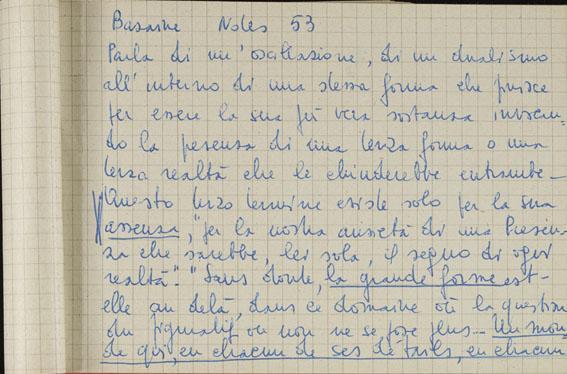 Bazaine Notes 53
Parla di un'oscillazione, di un dualismo
all'interno di una stessa forma che finisce
per essere la sua più vera sostanza invocan-
do la presenza di una terza forma o una
terza realtà che le chiuderebbe entrambe -
Questo terzo termine esiste solo per la sua
assenza, "per la nostra ansietà di una Presen-
za che sarebbe, lei sola, il segno di ogni
realtà". "Sans doute, la grande forme est-
elle au delà, dans ce domaine où la question
du figuratif ou non ne se pose plus... Un mon-
de qui, en chacun de ses détails, en chacun